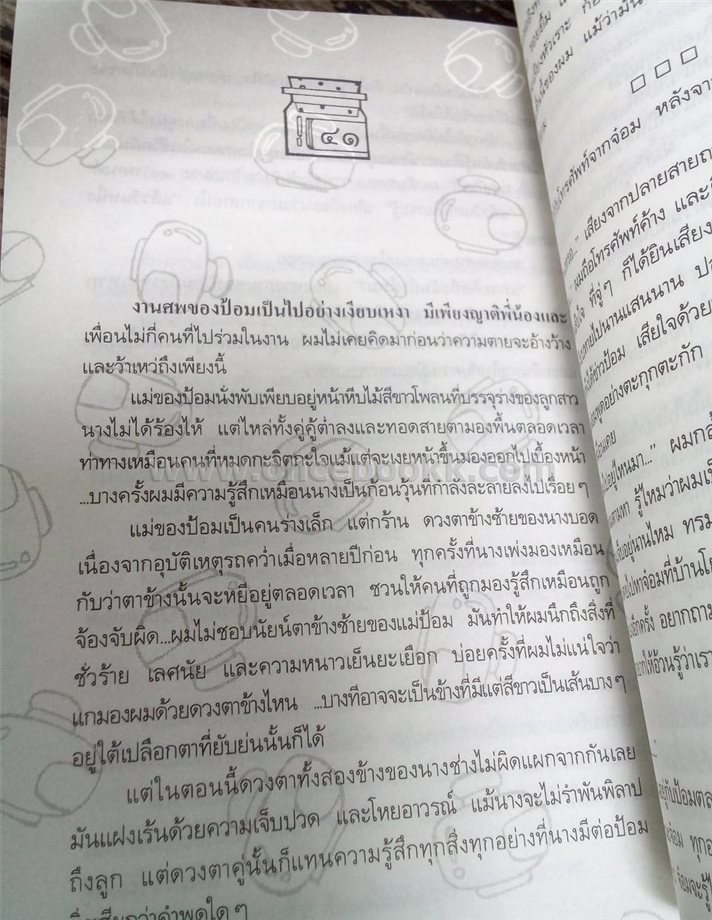 ๔๑
งานศพของป้อมเป็นไปอย่างเงียบเหงา มีเพียงญาติพี่น้องและ
เพื่อนไม่กี่คนที่ไปร่วมในงาน ผมไม่เคยคิดมาก่อนว่าความตายจะอ้างว้าง
และว้าเหว่ถึงเพียงนี้
แม่ของป้อมนั่งพับเพียบอยู่หน้าหีบไม้สีขาวโพลนที่บรรจุร่างของลูกสาว
นางไม่ได้ร้องไห้ แต่ไหล่ทั้งคู่คู้ต่ำลงและทอดสายตามองพื้นตลอดเวลา
ท่าทางเหมือนคนที่หมดกะจิตกะใจแม้แต่จะเงยหน้าขึ้นมองออกไปเบื้องหน้า
...บางครั้งผมมีความรู้สึกเหมือนนางเป็นก้อนวุ้นที่กำลังละลายลงไปเรื่อยๆ
แม่ของป้อมเป็นคนร่างเล็ก แต่กร้าน ดวงตาข้างซ้ายของนางบอด
เนื่องจากอุบัติเหตุรถคว่ำเมื่อหลายปีก่อน ทุกครั้งที่นางเพ่งมองเหมือน
กับว่าตาข้างนั้นจะหยีอยู่ตลอดเวลา ชวนให้คนที่ถูกมองรู้สึกเหมือนถูก
จ้องจับผิด...ผมไม่ชอบนัยน์ตาข้างซ้ายของแม่ป้อม มันทำให้ผมนึกถึงสิ่งที่
ชั่วร้าย เลศนัย และความหนาวเย็นยะเยือก บ่อยครั้งที่ผมไม่แน่ใจว่า
แกมองผมด้วยดวงตาข้างไหน ...บางทีอาจจะเป็นข้างที่มีแต่สีขาวเป็นเส้นบางๆ
อยู่ใต้เปลือกตาที่ยับย่นนั้นก็ได้
แต่ในตอนนี้ดวงตาทั้งสองข้างของนางช่างไม่ผิดแผกจากกันเลย
มันแฝงเร้นด้วยความเจ็บปวด และโหยอาวรณ์ แม้นางจะไม่รำพันพิลาป
ถึงลูก แต่ดวงตาคู่นั้นก็แทนความรู้สึกทุกสิ่งทุกอย่างที่นางมีต่อป้อม
กว่าคำพูดใดๆ
โทรศัพท์จากจ๋อม หลังจา
เสียงจากปลายสายถ
ผมถือโทรศัพท์ค้าง และ
ที่จู่ๆ ก็ได้ยินเสียง
หายไปนานแสนนาน
ป้อม เสียใจด้วย
อย่างตะกุกตะกัก
ไหนมา..." ผมกล
รู้ไหมว่าผมเป็
อยู่นานไหม ทรม
ไปหาจ๋อมที่บ้านโด
ครั้ง อยากถาม
ให้อ้วนรู้ว่าเรา
กับป้อมตล
จ๋อม ทุกอ
จ๋อมจะรู้ไ